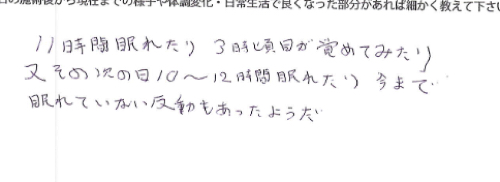 の施術後から現在までの様子や体調変化・日常生活で良くなった部分があれば細かく教えて下さい
11時間眠れたり 3時頃目が覚めてみたり
又その次の日10〜12時間眠れたり 今まで
眠れていない反動もあったようだ